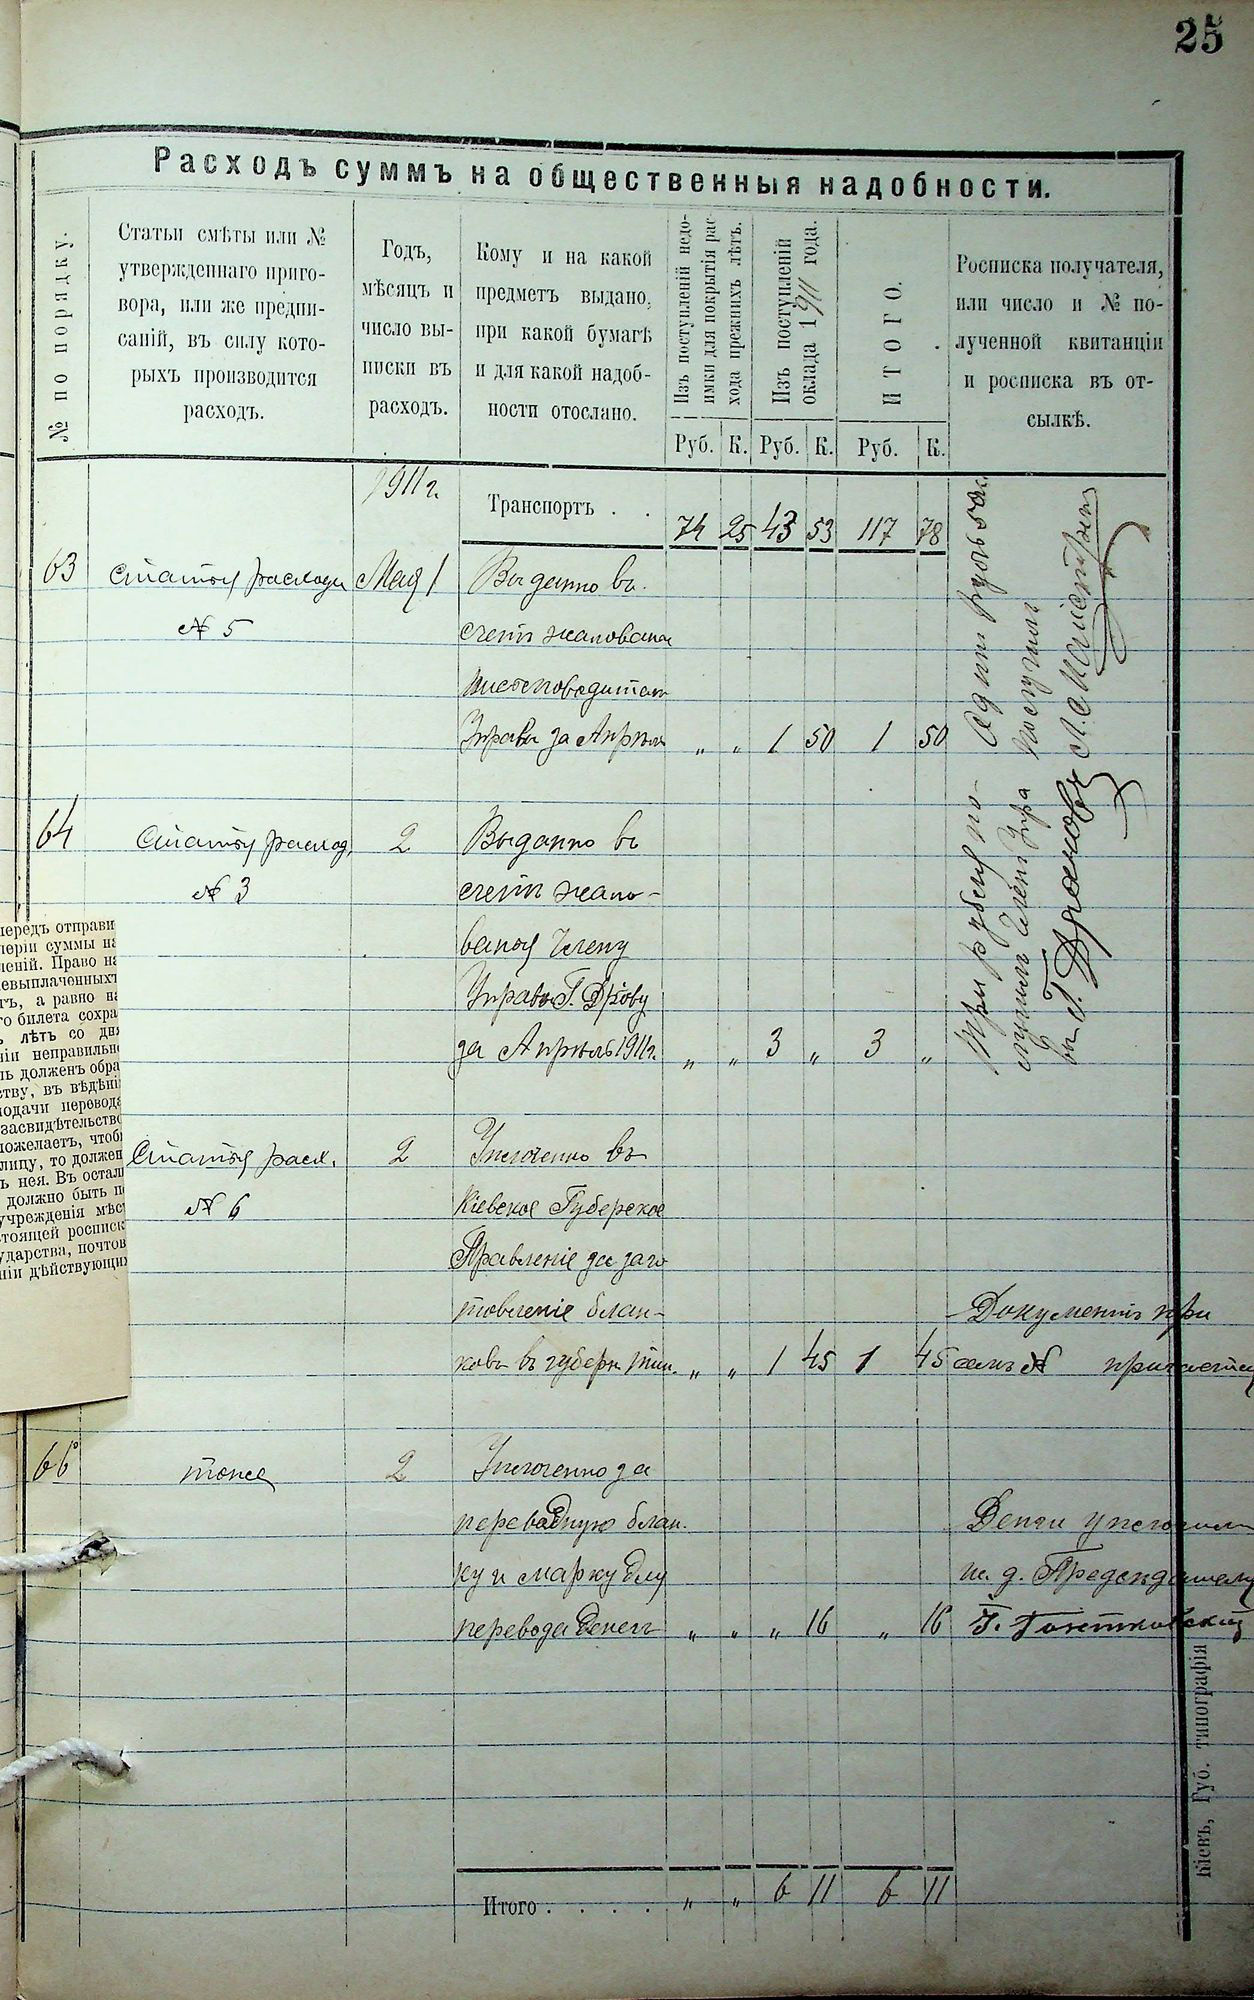 25
Расходъ суммъ на общественныя надобности.
№ по порядку.
Статьи смѣты или №
утвержденнаго приго-
вора, или же предпи-
саній, въ силу кото-
рыхъ производится
расходъ.
Годъ,
мѣсяцъ и
число вы-
писки въ
расходъ.
Кому и на какой
предметъ выдано,
при какой бумагѣ
и для какой надоб-
ности отослано.
Изъ поступленій недо-
имки для покрытія рас-
хода прежнихъ лѣтъ.
Изъ поступленій
оклада 1911 года.
ИТОГО.
Росписка получателя,
или число и № по-
лученной квитанціи
и росписка въ от-
сылкѣ.
Руб. К. Руб. К. Руб. К.
1911 г.
Транспортъ . . 74 25 43 53 117 78
63 Статья расхода Мая 1 Выданно въ
№ 5 счетъ жалованя
Управы за Апрѣль „ „ 1 50 1 50
получилъ
64 Статья расход. 2 Выданно въ
№ 3 счетъ жало-
ванья Члену
Управы Г.
за Апрѣль 1911 г. „ „ 3 „ 3 „
Три рубля по-
лучилъ Членъ Упра
вы Г.
Статья расх. 2 Уплочено въ
№ 6 Кіевское Губерское
Правленіе за заго
товленіе блан-
ковъ въ губерн тип. „ „ 1 45 1 45
Документъ при
семъ №
66 тоже 2 Уплоченно за
переводную блан.
ку и марку для
перевода денегъ „ „ „ 16 „ 16
Денги уплотилъ
и. д. Предсѣдателя
Итого . . . . „ „ 6 11 6 11
Кіевъ, Губ. типографія
передъ отправи
перiи суммы на
леній. Право на
невыплаченныхъ
гъ, а равно на
го билета сохра
ъ лѣтъ со дня
ніи неправильно
ль долженъ обра
ству, въ вѣдѣні
подачи перевода
засвидѣтельство
пожелаетъ, чтобы
лицу, то должен
ъ нея. Въ остал
должно быть п
учрежденія мѣст
стоящей росписк
ударства, почтов
ніи дѣйствующих